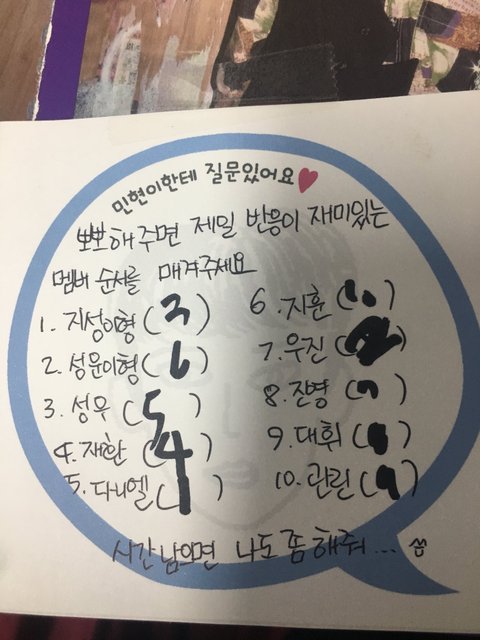 민현이한테 질문있어요♥
뽀뽀해주면 제일 반응이 재미있는
멤버 순서를 매겨주세요
1. 지성이형 (3)
2. 성운이형 (6)
3. 성우 (5)
4. 재환 (4)
5. 다니엘 (1)
6. 지훈 (10)
7. 우진 (2)
8. 진영 (7)
9. 대휘 (8)
10. 관린 (9)
시간 남으면 나도 좀 해줘...